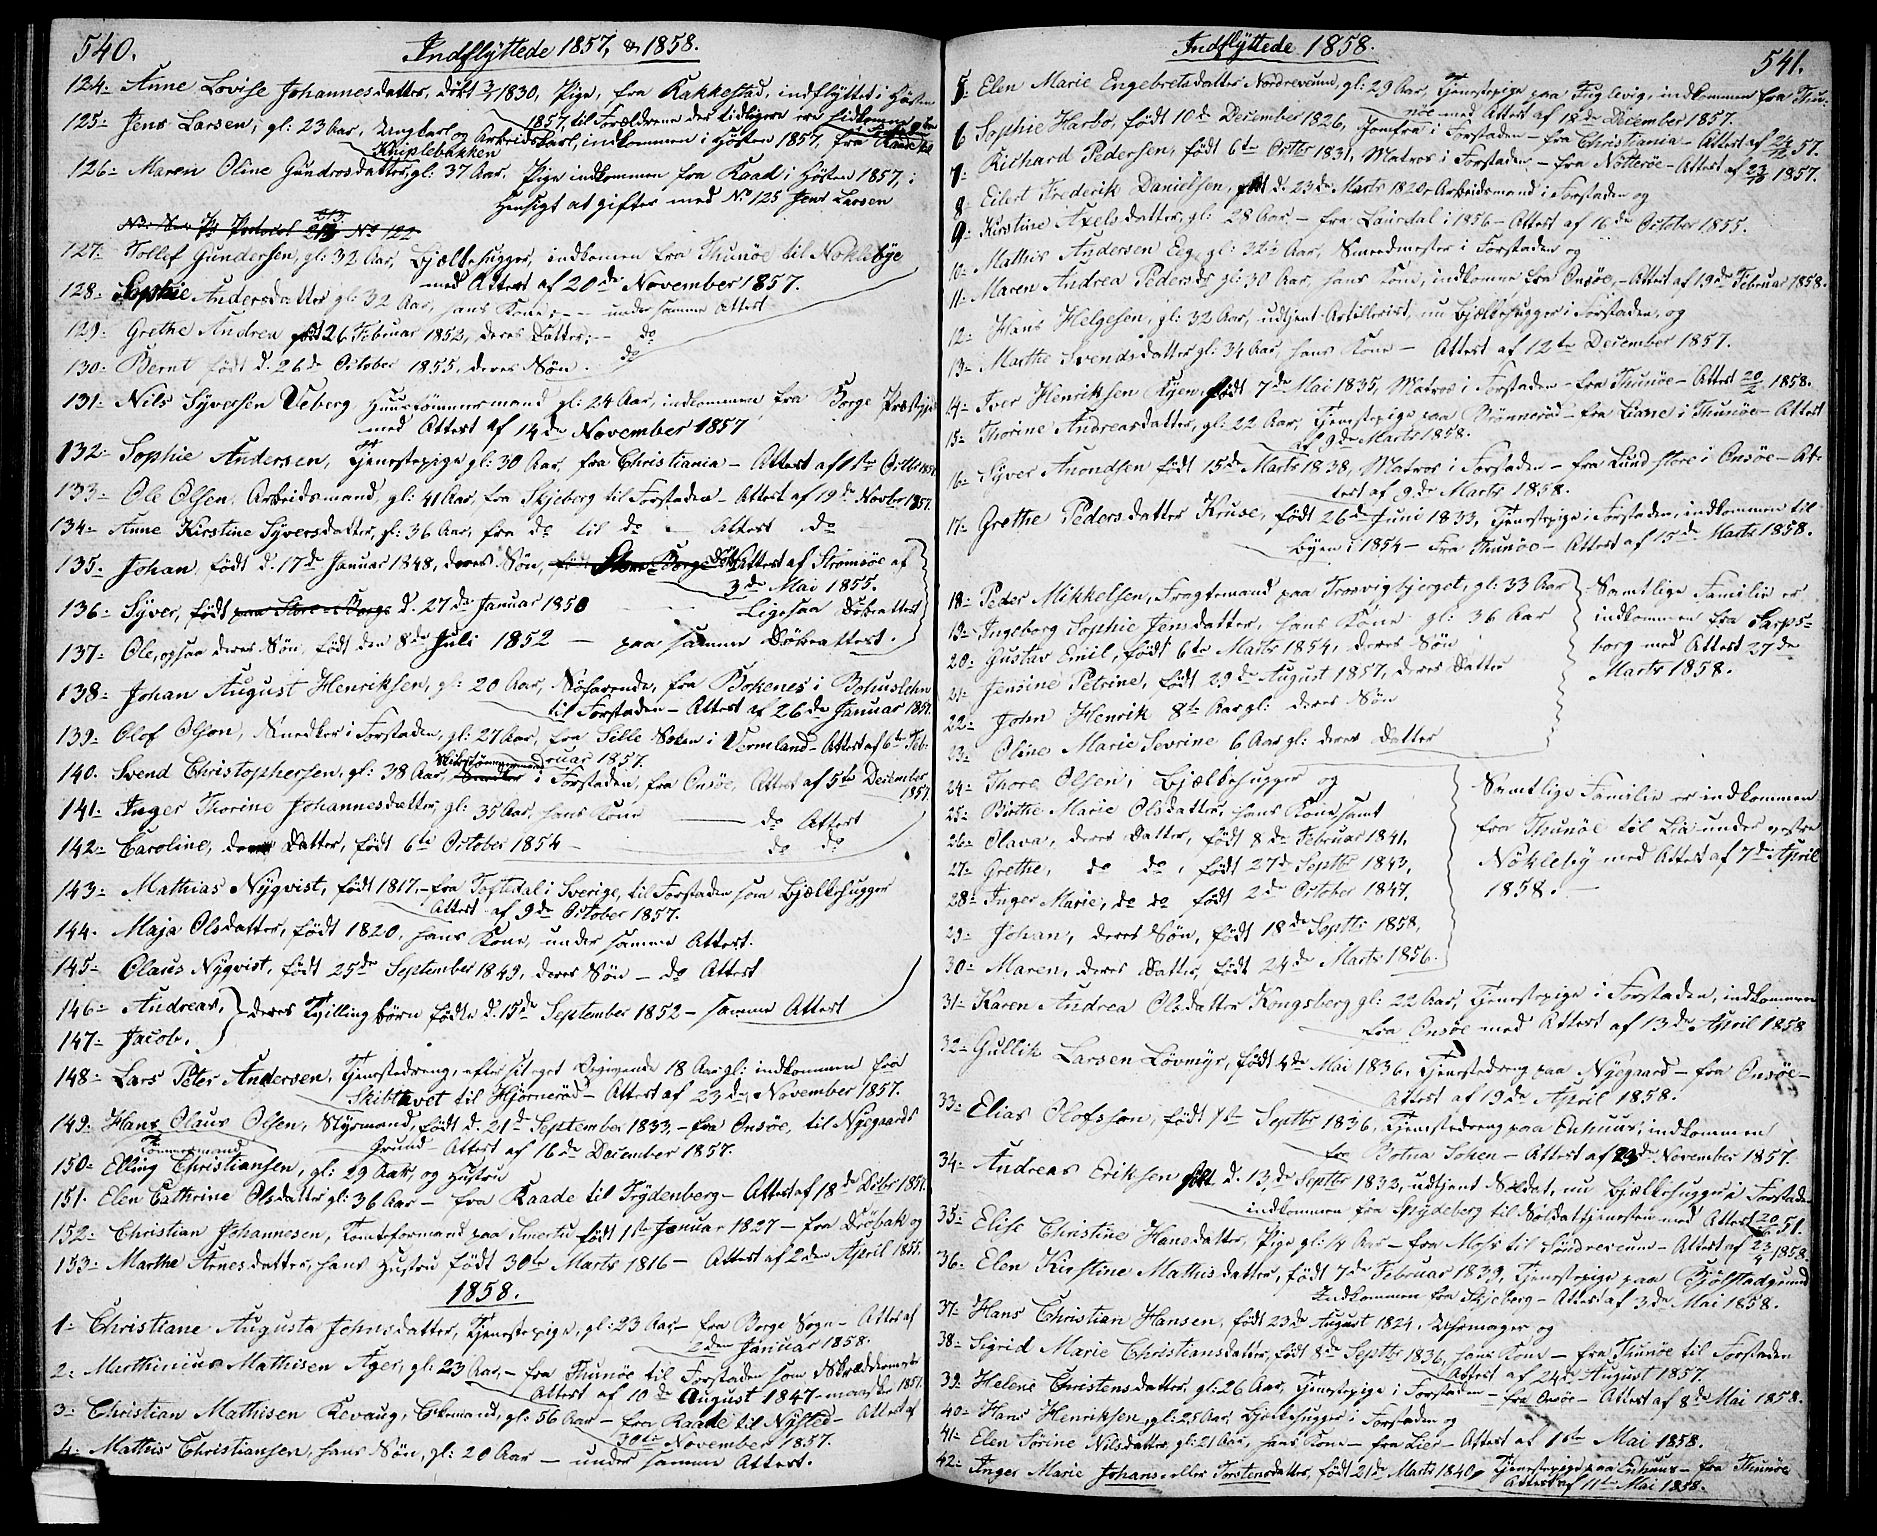 540.
Indflyttede 1857, & 1858.
124- Anne Lovise Johannesdatter, døbt 1830, Pige, fra Rakkestad, indflyttet i Høsten
1857, til Forældrene der tidligere ere indkomne
125- Jens Larsen, gl: 23 Aar, Ungkarl og Arbeidskarl, indkommen i Høsten 1857, fra Raade
Kniplebakken
126- Maren Oline Gundersdatter, gl: 37 Aar, Pige indkommen fra Raad i Høsten 1857, i
Hensigt at giftes med No 125 Jens Larsen
127- Tollef Gundersen, gl: 32 Aar, Bjælkehugger, indkomen fra Thunøe til Noklebye
med Attest af 20de November 1857.
128- Sophie Andersdatter gl: 32 Aar, hans Kone, - - under samme Attest
129- Grethe Andrea født 26 Februar 1852, deres Datter, - do
130- Bernt født d. 26de October 1855, deres Søn - do
131- Nils Syversen Veberg, Huustømmermand gl: 24 Aar, indkommen fra Borge Præstgjd
med Attest af 14de November 1857
132- Sophie Andersen, Tjenestepige gl: 30 Aar, fra Christiania - Attest af 1ste Octbr 1857
133- Ole Olsen, Arbeidsmand, gl: 41 Aar, fra Skjeberg til Forstaden - Attest af 19de Novbr 1857.
134- Anne Kirstine Syversdatter, gl: 36 Aar, fra do til do - Attest do
135- Johan, født d. 17de Januar 1848, deres Søn, Attest af Strømsøe af
3de Mai 1855.
136- Syver, født paa Store-Borge d. 27de Januar 1850 - Ligesaa Døbeattest
137- Ole, ogsaa deres Søn, født den 8de Juli 1852 - paa samme Døbeattest.
138- Johan August Henriksen, gl: 20 Aar, Søfarende, fra Bokenes i Bohuslehn
til Forstaden - Attest af 26de Januar 1857.
139- Olof Olson, Snedker i Forstaden, gl: 27 Aar, fra Sille Soken i Vermland - Attest af 6te Feb-
ruar 1857.
140- Svend Christophersen, gl: 38 Aar, Skibstømmermand i Forstaden, fra Onsøe, Attest af 5te December
1857
141- Inger Thorine Johannesdatter, gl: 35 Aar, hans Kone - do Attest
142- Caroline, deres Datter, født 6te October 1854 - do do
143- Mathias Nyqvist, født 1817, - fra Toftedal i Sverige, til Forstaden som Bjælkehugger
Attest af 9de October 1857.
144. Maja Olsdatter, født 1820, hans Kone, under samme Attest.
145- Olaus Nyqvist, født 25de September 1849, deres Søn - do Attest
146- Andreas, } deres Tvillingbørn fødte d. 15de September 1852 - samme Attest
147- Jacob, }
148- Lars Peter Andersen, Tjenestedreng, efter sit eget Opgivende 18 Aar gl: indkommen fra
Skibtvet til Hjørnerød - Attest af 23de November 1857.
149- Hans Olaus Olsen, Styrmand, født d. 21de September 1833, - fra Onsøe, til Nygaards
Grund - Attest af 16de December 1857.
Tømmermand
150- Elling Christiansen, gl: 29 Aar, og Hustru
151. Elen Cathrine Olsdatter gl: 36 Aar - fra Raade til Trydenberg - Attest af 18de Decbr 1857.
152- Christian Johannesen, Tomteformand paa Smertu født 1ste Januar 1827 - fra Drøbak og
153- Marthe Arnesdatter, hans Hustru født 30te Marts 1816 - Attest af 2den April 1855.
1858.
1- Christiane Augusta Johnsdatter, Tjenestepige, gl: 23 Aar - fra Borge Sogn - Attest af
2den Januar 1858.
2- Marthinius Mathisen Ager, gl: 23 Aar, - fra Thunøe til Forstaden som Skræddermester
Attest af 10de August 1847 - maaske 1857.
3- Christian Mathisen Revaug, Enkemand, gl: 56 Aar - fra Raade til Nysted - Attest af
30te November 1857.
4- Mathis Christiansen, hans Søn, gl: 20 Aar - under samme Attest.
Indflyttede 1858.
541.
5- Elen Marie Engebretsdatter Nordreveum, gl: 29 Aar, Tjenestepige paa Fuglevig, indkommen fra Thu-
nøe med Attest af 18de December 1857.
6- Sophie Harbo, født 10de December 1826, Jomfru i Forstaden - fra Christiania - Attest af 24/12 57.
7- Richard Pedersen, født 6te Octbr 1831, Matros i Forstaden - fra Nøtterøe - Attest af 1857.
8- Eilert Frederik Danielsen, født d. 23de Marts 1820, Arbeidsmand i Forstaden og
9- Kirstine Axelsdatter, gl: 28 Aar - fra Laurdal i 1856 - Attest af 16de October 1855.
10- Mathis Andersen Eeg, gl: 32½ Aar, Smedmester i Forstaden og
11- Maren Andrea Pedersdr gl: 30 Aar, hans Kone, indkomne fra Onsøe, - Attest af 19de Februar 1858.
12- Hans Helgesen, gl: 32 Aar, udtjent Artillerist, nu Bjælkehugger i Forstaden, og
13- Marthe Svendsdatter gl: 34 Aar, hans Kone - Attest af 12te December 1857.
14- Iver Henriksen Kyen, født 7de Mai 1835, Matros i Forstaden - fra Thunøe - Attest 20/2 1858.
15- Thorine Andreasdatter, gl: 22 Aar, Tjenestepige paa Brønnerød - fra Liane i Thunøe - Attest
af 9de Marts 1858.
16- Syver Anondsen født 15de Marts 1838, Matros i Forstaden - fra Lund store i Onsøe - At-
test af 9de Marts 1858.
17- Grethe Pedersdatter Kruse, født 26de Juni 1833, Tjenestepige i Forstaden, indkommen til
Byen i 1854 - Fra Thunøe - Attest af 15de Marts 1858.
18- Peder Mikkelsen, Fragtemand paa Trosvigbjerget, gl: 33 Aar
19- Ingeborg Sophie Jensdatter, hans Kone gl: 36 Aar
20- Gustav Emil, født 6te Marts 1854, deres Søn
21- Jensine Petrine, født 29de August 1857, deres Datter
22- John Henrik 8te Aar gl: deres Søn
23- Oline Marie Sevrine 6 Aar gl: deres Datter
Samtlige Familie er
indkommen fra Sarps-
borg med Attest 27de
Marts 1858.
24- Thore Olsen, Bjælkehugger og
25- Birthe Marie Olsdatter, hans Kone samt
26- Olava, deres Datter, født 8de Februar 1841,
27- Grethe, do do, født 27de Septbr 1843,
28- Inger Marie, do do født 2de October 1847,
29- Johan, deres Søn, født 18de Septbr 1858,
30- Maren, deres Datter, født 24de Marts 1856.
Samtlige Familie er indkommen
fra Thunøe til Lia under vestre
Nøkleby med Attest af 7de April
1858. -
31- Karen Andrea Olsdatter Kongsberg gl: 22 Aar, Tjenestepige i Forstaden, indkommen
fra Onsøe med Attest af 13de April 1858
32- Gullik Larsen Løvmyr, født 4de Mai 1836, Tjenestedreng paa Nyegaard - fra Onsøe -
Attest af 19de April 1858.
33- Elias Olofsson, født 1ste Septbr 1836, Tjenestedreng paa Enhuus, indkommen
fra Botna Sohen - Attest af 23de November 1857.
34- Andreas Eriksen født d. 13de Septbr 1833, udtjent Soldat, nu Bjælkehugger i Forstaden
indkommen fra Spydeberg til Soldattjenesten med Attest 51.
35- Elise Christine Hansdatter, Pige gl: 14 Aar - fra Moss til Søndreveum - Attest af 23/4 1858.
36- Elen Kirstine Mathisdatter, født 7de Februar 1833, Tjenestepige paa Bjølstadgrund
Indkommen fra Skjeberg - Attest af 3de Mai 1858.
37- Hans Christian Hansen, født 23de August 1824, Uhrmager og
38- Sigrid Marie Christiansdatter, født 8de Septbr 1836, hans Kone - fra Thunøe til Forstaden
Attest af 24de August 1857.
39- Helene Christensdatter, gl: 26 Aar, Tjenestepige i Forstaden - fra Onsøe - Attest af 8de Mai 1858.
40- Hans Henriksen, gl: 25 Aar, Bjælkehugger i Forstaden og
41- Elen Sørine Nilsdatter, gl: 21 Aar, hans Kone - fra Lier - Attest af 1ste Mai 1858.
42- Inger Marie Johans- eller Torstensdatter, født 21de Marts 1840, Tjenestepige paa Enhuus - fra Thunøe
Attest af 11te Mai 1858.